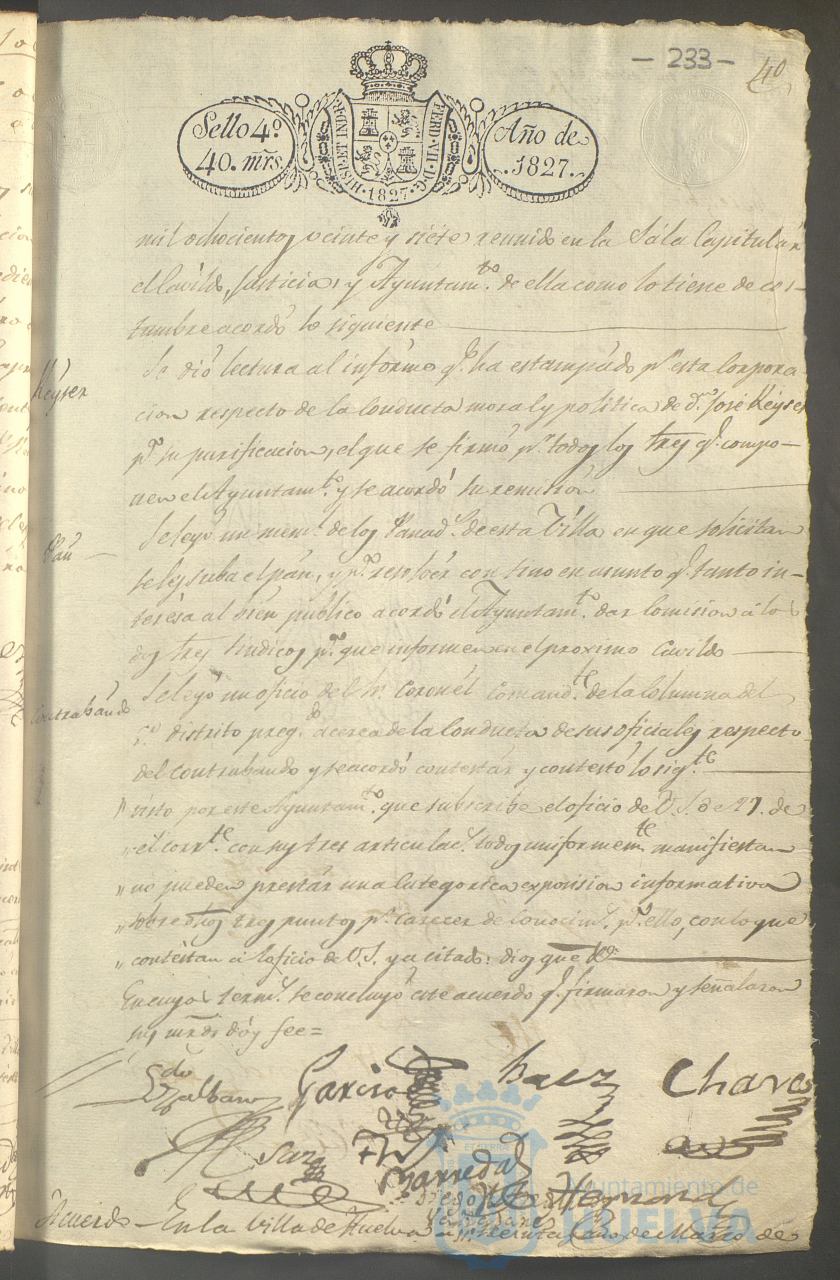 - 233 -
40
Sello 4º
40. mrs.
HISP. ET IND. R. FERD. VII. D. G.
1827
Año de
1827.
mil ochocientos veinte y siete reunido en la Sála Capitulár
el Cavildo, Justicia, y Ayuntamto. de ella como lo tiene de cos-
tumbre acordó lo siguiente
Réyser
Se dió lectura al informe qe. ha estampádo pr. esta Corpora
cion respecto de la Conducta moral y politica de Dn. José Réyser
pa. su purificacion, el que se firmó pr. todos los Sres qe. compo-
nen el Ayuntamto. y se acordó su remision
Pan
Se leyó un meml. de los Panads. de esta Villa en que solicitan
se les suba el pán, y pa. resolvér con tino en asunto qe. tanto in-
terésa al bién publico acordó el Ayuntamto. dar Comision á los
dos Sres Sindicos pa. que informen en el proximo Cavildo
Contrabándo
Se leyó un oficio del Sr. Coronél Comandte. de la Columna del
5º. distrito pregdo. acerca de la Conducta de sus oficiales respecto
del Contrabando y se acordó contestár y contestó lo sigte.
" visto por este Ayuntamto. que subscribe el oficio de V.S. de 27. de
" el corrte. con sus tres articulacs. todos uniformemte. manifiestan
" no pueden prestár una Categorica exposision informativa
" sobre dhos tres puntos pr. carecer de Conocimto. pa. ello, con lo que
" contéstan al oficio de V.S. ya citado: dios gue &a.
En cuyos termos. se concluyó este acuerdo qe. firmaron y señalaron
sus mrds. doy fee=
Garcia
Baez
Chaves
Barreda
Diego
Acuerdo - En la Villa de Huelva en treinta de Marzo de
Ayuntamiento de
HUELVA